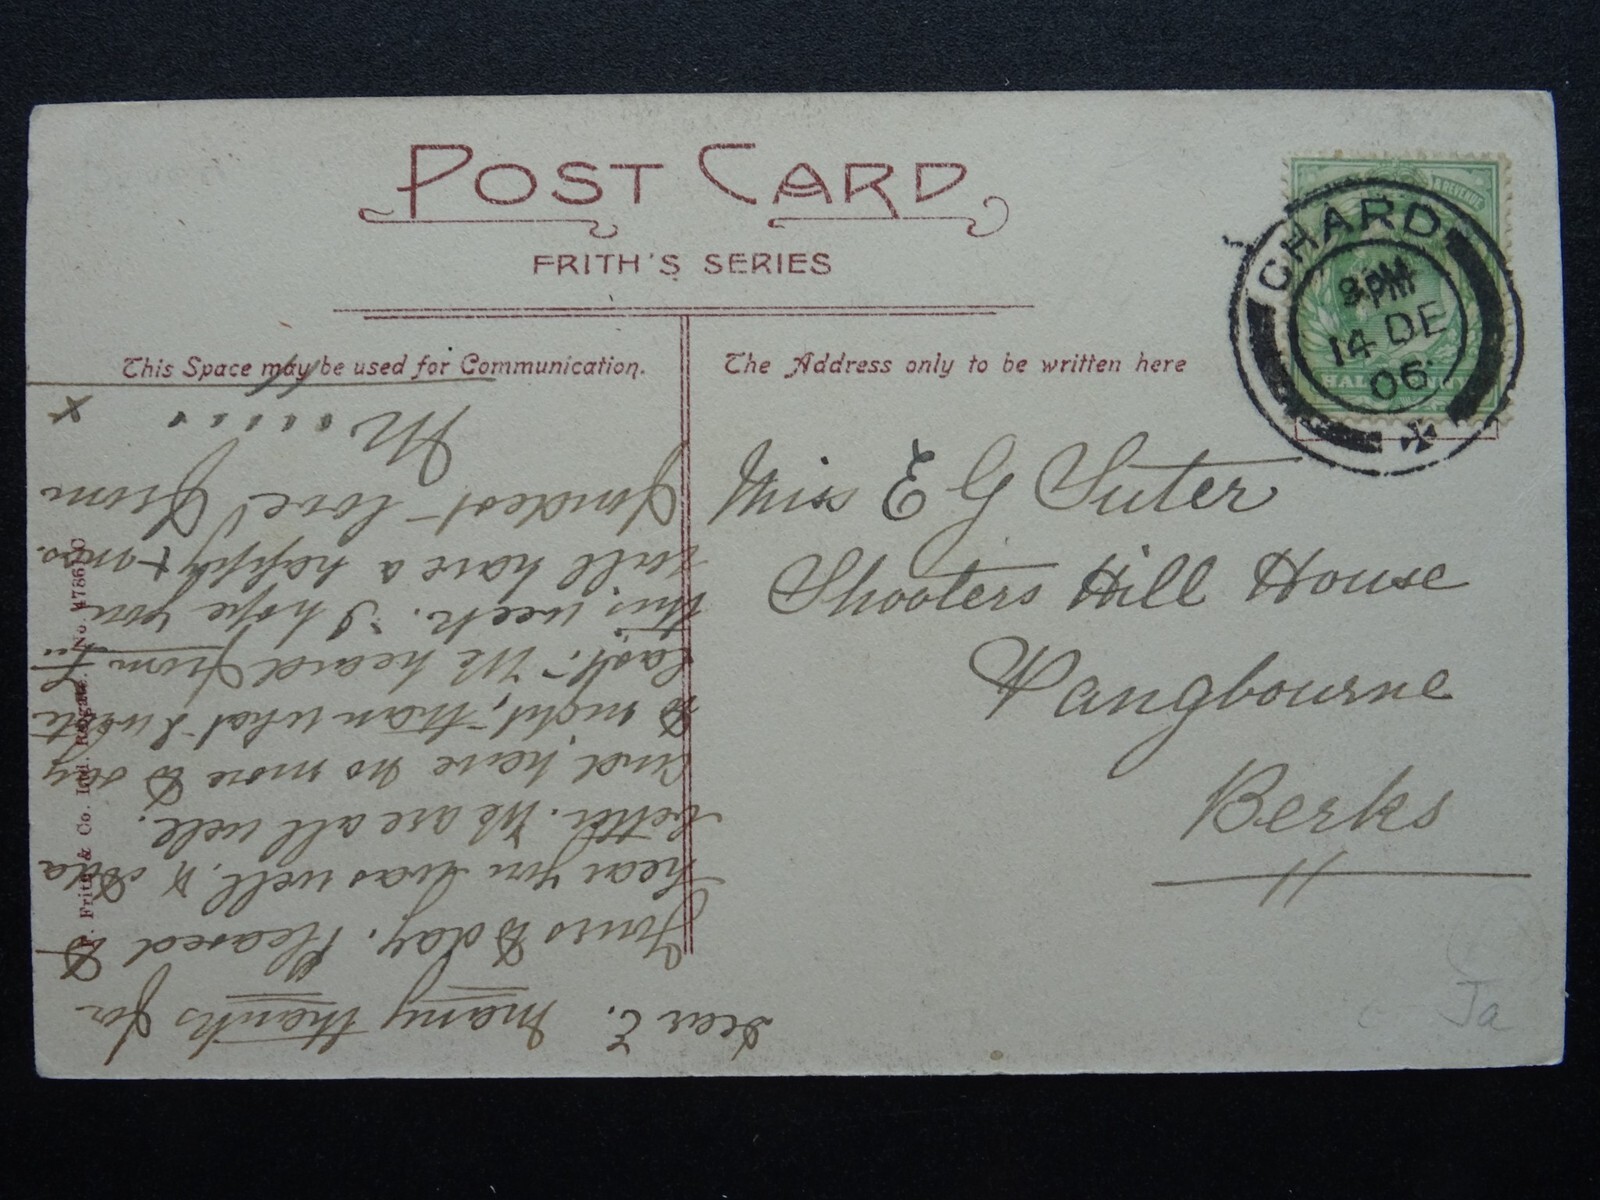 POST CARD
FRITH'S SERIES
This Space may be used for Communication.
The Address only to be written here
CHARD
8 PM
14 DE
06
HALFPENNY
& REVENUE
Miss E G Suter
Shooters Hill House
Pangbourne
Berks
Dear E. Many thanks for
Yours to day. Pleased to
hear you was well, & Ada
better. We are all well.
And have no more to say
to night, than what I wrote
Last. We heard from
this week. I hope you
all have a happy Xmas.
Fondest love from
M
x
F. Frith & Co. Ltd. Reigate. No. 47861
Ja